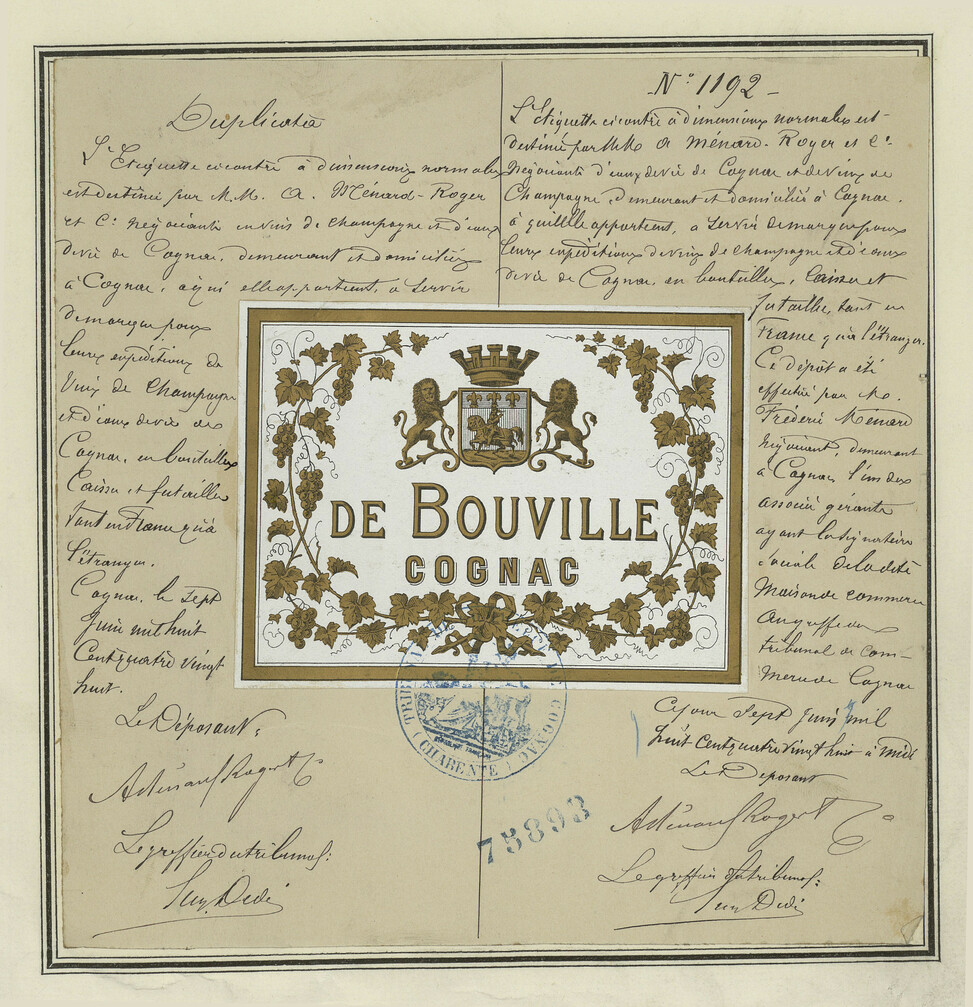 Duplicata
L'Etiquette ci contre à dimensions normales
est destinée par M.M. A. Ménard-Roger
et Cie négociants en vins de Champagne et d'eaux
de vie de Cognac, demeurant et domiciliés
à Cognac, à qui elle appartient, à servir
de marque pour
leurs expéditions de
Vins de Champagne
et d'eaux de vie de
Cognac, en bouteilles
Caisses et futailles
tant en France qu'à
l'étranger.
Cognac, le Sept
Juin mil huit
Cent quatre vingt
huit.
Le Déposant:
A Ménard Roger & Cie
Le greffier du tribunal:
N° 1192
L'Etiquette ci contre à dimensions normales est
destinée par MM A Ménard-Roger et Cie
Négociants d'eaux de vie de Cognac et de vins de
Champagne, demeurant et domiciliés à Cognac,
à qui elle appartient, à servir de marque pour
leurs expéditions de vins de Champagne et d'eaux
de vie de Cognac, en bouteilles, caisses et
futailles, tant en
France qu'à l'étranger.
Ce dépôt a été
effectué par M.
Fréderic Ménard
Négociant, demeurant
à Cognac l'un des
associés gérants
ayant la signature
sociale de la dite
Maison de commerce
au greffe du
tribunal de Com-
merce de Cognac
Ce jour Sept Juin mil
huit cent quatre vingt huit à midi
Le Déposant
A Ménard Roger & Cie
Le greffier du tribunal:
DE BOUVILLE
COGNAC
TRIBUNAL DE COMMERCE DE COGNAC
(CHARENTE)
75893